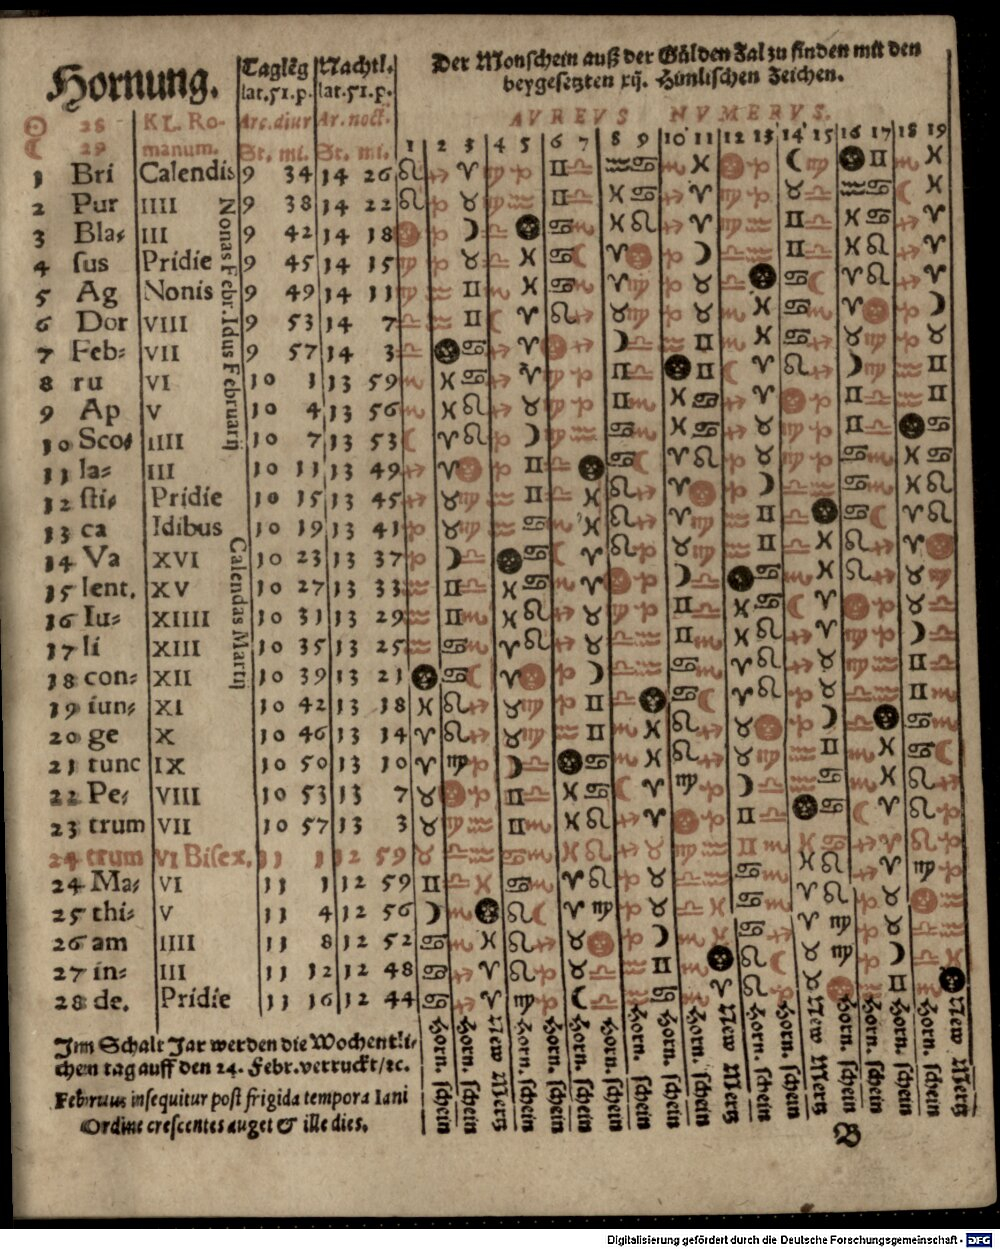 Hornung.
Taglēg Nachtl.
lat.51.p. lat.51.p.
Der Monschein auß der Gülden Zal zu finden mit den
beygesetzten xij. Himlischen Zeichen.
AVREVS NVMERVS.
28 KL. Ro- Arc.diur Ar.noct.
29 manum. St. mi. St. mi.
1 2 3 4 5 6 7 8 9 10 11 12 13 14 15 16 17 18 19
1 Bri Calendis 9 34 14 26
2 Pur IIII 9 38 14 22
3 Bla- III 9 42 14 18
4 sus Pridie 9 45 14 15
5 Ag Nonis 9 49 14 11
6 Dor VIII 9 53 14 7
7 Feb- VII 9 57 14 3
8 ru VI 10 1 13 59
9 Ap V 10 4 13 56
10 Sco- IIII 10 7 13 53
11 la- III 10 11 13 49
12 sti- Pridie 10 15 13 45
13 ca Idibus 10 19 13 41
14 Va XVI 10 23 13 37
15 lent. XV 10 27 13 33
16 Iu- XIIII 10 31 13 29
17 li XIII 10 35 13 25
18 con- XII 10 39 13 21
19 iun- XI 10 42 13 18
20 ge X 10 46 13 14
21 tunc IX 10 50 13 10
22 Pe- VIII 10 53 13 7
23 trum VII 10 57 13 3
24 trum VI Bisex. 11 1 12 59
24 Ma- VI 11 1 12 59
25 thi- V 11 4 12 56
26 am IIII 11 8 12 52
27 in- III 11 12 12 48
28 de. Pridie 11 16 12 44
Nonas Febr. Idus Februarij
Calendas Martij
Horn. schein
Horn. schein
New Mertz
Horn. schein
Horn. schein
Horn. schein
Horn. schein
Horn. schein
Horn. schein
Horn. schein
New Mertz
Horn. schein
Horn. schein
New Mertz
Horn. schein
Horn. schein
Horn. schein
Horn. schein
New Mertz
Jm Schalt Jar werden die Wochentli-
chen tag auff den 24. Febr. verruckt/ꝛc.
Februus insequitur post frigida tempora Iani
Ordine crescentes auget & ille dies.
B
Digitalisierung gefördert durch die Deutsche Forschungsgemeinschaft - DFG